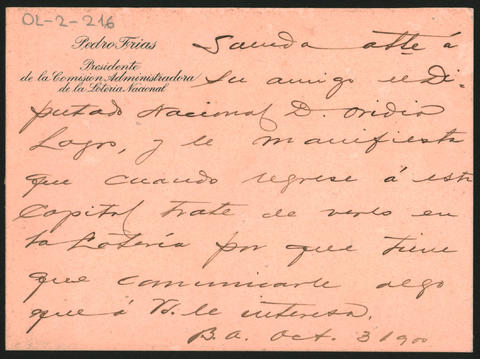 OL-2-216
Pedro Frias
Presidente
de la Comision Administradora
de la Loteria Nacional
Saluda atte á
su amigo el di-
putado Nacional D. Ovidio
Lagos, y le manifiesta
que cuando regrese á esta
Capital trate de verlo en
la Lotería por que tiene
que comunicarle algo
que á Vd. le interesa.
B. A. Oct. 3 1900